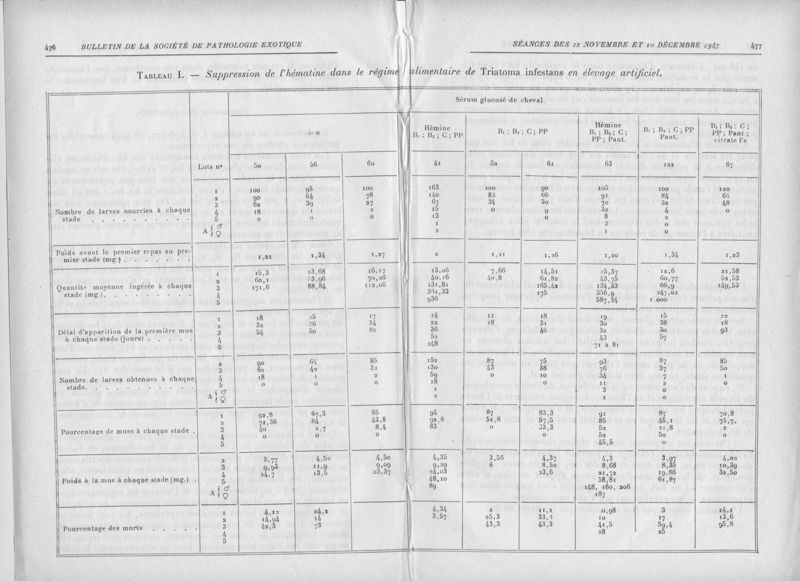 476 BULLETIN DE LA SOCIÉTÉ DE PATHOLOGIE EXOTIQUE
SÉANCES DES 12 NOVEMBRE ET 10 DÉCEMBRE 1947 477
TABLEAU I. — Suppression de l'hématine dans le régime alimentaire de Triatoma infestans en élevage artificiel.
Sérum glucosé de cheval
+ o
Hémine B₁ ; B₂ ; C ; PP
B₁ ; B₂ ; C ; PP
Hémine B₁ ; B₂ ; C ; PP ; Pant.
B₁ ; B₂ ; C ; PP Pant.
B₁ ; B₂ ; C ; PP ; Pant ; citrate Fe
Lots nº 50 56 60 41 52 61 63 122 67
Nombre de larves nourries à chaque stade
1 100 95 100 163 100 90 105 100 120
2 90 64 78 140 83 66 91 84 64
3 62 39 27 67 34 30 70 32 48
4 18 1 2 15 0 9 32 4 0
5 0 0 0 13 0 8 2
A ♂ 1 3 0
♀ 2 1 0
Poids avant le premier repas au premier stade (mg.) 1,21 1,34 1,27 2 1,21 1,26 1,20 1,34 1,23
Quantité moyenne ingérée à chaque stade (mg.)
1 15,3 23,68 16,17 13,06 7,66 14,51 15,37 12,6 21,58
2 60,2 53,96 70,26 40,16 40,8 61,82 43,75 60,77 52,53
3 171,6 88,84 112,06 131,81 165,42 134,33 66,9 149,53
4 361,33 175 356,9 247,02
5 936 587,34 1.000
Délai d'apparition de la première mue à chaque stade (jours)
1 18 25 17 14 11 18 19 15 22
2 32 26 34 22 18 31 30 38 18
3 54 50 82 36 46 32 30 93
4 52 43 57
5 248 71 à 81
Nombre de larves obtenues à chaque stade
2 90 64 85 152 87 75 93 87 85
3 62 42 32 130 43 38 76 37 50
4 18 1 2 59 0 10 34 7 1
5 0 0 0 18 0 11 2 0
A ♂ 1 3 0
♀ 2 1 0
Pourcentage de mues à chaque stade
1 92,8 67,3 85 94 87 83,3 91 87 70,8
2 71,36 84 43,8 92,8 51,8 57,5 85 46,1 75,7
3 40 2,7 8,4 83 0 33,3 52 21,8 2
4 0 0 0 0 52 50 0
5 45,5 0
Poids à la mue à chaque stade (mg.)
2 3,77 4,52 4,50 4,35 3,56 4,37 4,3 3,97 4,02
3 9,93 11,9 9,09 9,29 6 8,52 8,68 8,35 10,39
4 24,7 13,5 23,37 24,03 23,6 21,72 19,86 32,50
5 48,10 58,81 61,87
A ♂ 89 148, 160, 206
♀ 187
Pourcentage des morts
1 4,12 24,2 4,34 2 11,1 0,98 3 14,2
2 14,94 14 3,57 25,3 33,3 10 17 13,6
3 42,3 73 43,3 43,3 41,5 59,4 95,8
4 28 25
5